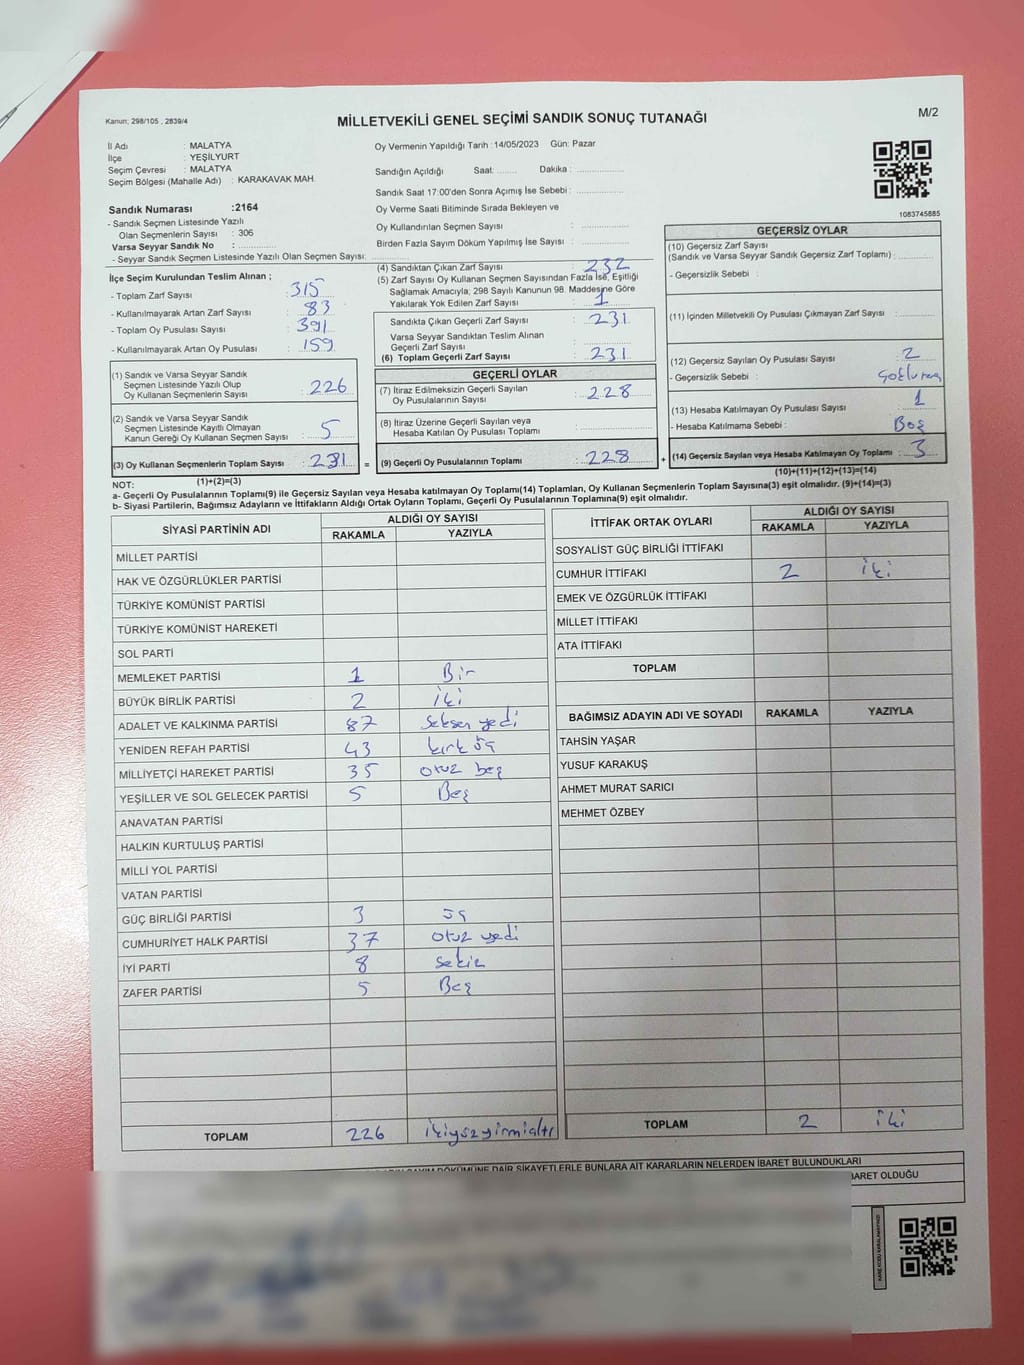 Kanun; 298/105 , 2839/4
MİLLETVEKİLİ GENEL SEÇİMİ SANDIK SONUÇ TUTANAĞI
M/2
İl Adı : MALATYA
İlçe : YEŞİLYURT
Seçim Çevresi : MALATYA
Seçim Bölgesi (Mahalle Adı) : KARAKAVAK MAH.
Oy Vermenin Yapıldığı Tarih :14/05/2023 Gün: Pazar
Sandığın Açıldığı Saat: ........ Dakika : ................
Sandık Saat 17:00'den Sonra Açımış İse Sebebi : ................
Oy Verme Saati Bitiminde Sırada Bekleyen ve
Oy Kullandırılan Seçmen Sayısı : ................
Birden Fazla Sayım Döküm Yapılmış İse Sayısı : ................
1083745885
Sandık Numarası :2164
- Sandık Seçmen Listesinde Yazılı
Olan Seçmenlerin Sayısı : 306
Varsa Seyyar Sandık No : ............
- Seyyar Sandık Seçmen Listesinde Yazılı Olan Seçmen Sayısı: ............
İlçe Seçim Kurulundan Teslim Alınan ;
- Toplam Zarf Sayısı : 315
- Kullanılmayarak Artan Zarf Sayısı : 83
- Toplam Oy Pusulası Sayısı : 391
- Kullanılmayarak Artan Oy Pusulası : 159
(1) Sandık ve Varsa Seyyar Sandık
Seçmen Listesinde Yazılı Olup
Oy Kullanan Seçmenlerin Sayısı : 226
(2) Sandık ve Varsa Seyyar Sandık
Seçmen Listesinde Kayıtlı Olmayan
Kanun Gereği Oy Kullanan Seçmen Sayısı : 5
(3) Oy Kullanan Seçmenlerin Toplam Sayısı : 231 =
(1)+(2)=(3)
(4) Sandıktan Çıkan Zarf Sayısı : 232
(5) Zarf Sayısı Oy Kullanan Seçmen Sayısından Fazla İse, Eşitliği
Sağlamak Amacıyla; 298 Sayılı Kanunun 98. Maddesine Göre
Yakılarak Yok Edilen Zarf Sayısı : 1
Sandıkta Çıkan Geçerli Zarf Sayısı : 231
Varsa Seyyar Sandıktan Teslim Alınan
Geçerli Zarf Sayısı :
(6) Toplam Geçerli Zarf Sayısı : 231
GEÇERLİ OYLAR
(7) İtiraz Edilmeksizin Geçerli Sayılan
Oy Pusulalarının Sayısı : 228
(8) İtiraz Üzerine Geçerli Sayılan veya
Hesaba Katılan Oy Pusulası Toplamı :
(9) Geçerli Oy Pusulalarının Toplamı : 228 +
GEÇERSİZ OYLAR
(10) Geçersiz Zarf Sayısı
(Sandık ve Varsa Seyyar Sandık Geçersiz Zarf Toplamı) ............
- Geçersizlik Sebebi :
(11) İçinden Milletvekili Oy Pusulası Çıkmayan Zarf Sayısı :
(12) Geçersiz Sayılan Oy Pusulası Sayısı : 2
- Geçersizlik Sebebi :
(13) Hesaba Katılmayan Oy Pusulası Sayısı : 1
- Hesaba Katılmama Sebebi : Boş
(14) Geçersiz Sayılan veya Hesaba Katılmayan Oy Toplamı : 3
(10)+(11)+(12)+(13)=(14)
NOT:
a- Geçerli Oy Pusulalarının Toplamı(9) ile Geçersiz Sayılan veya Hesaba katılmayan Oy Toplamı(14) Toplamları, Oy Kullanan Seçmenlerin Toplam Sayısına(3) eşit olmalıdır. (9)+(14)=(3)
b- Siyasi Partilerin, Bağımsız Adayların ve İttifakların Aldığı Ortak Oyların Toplamı, Geçerli Oy Pusulalarının Toplamına(9) eşit olmalıdır.
SİYASİ PARTİNİN ADI ALDIĞI OY SAYISI
RAKAMLA YAZIYLA
MİLLET PARTİSİ
HAK VE ÖZGÜRLÜKLER PARTİSİ
TÜRKİYE KOMÜNİST PARTİSİ
TÜRKİYE KOMÜNİST HAREKETİ
SOL PARTİ
MEMLEKET PARTİSİ 1 Bir
BÜYÜK BİRLİK PARTİSİ 2 iki
ADALET VE KALKINMA PARTİSİ 87 seksen yedi
YENİDEN REFAH PARTİSİ 43 kırk üç
MİLLİYETÇİ HAREKET PARTİSİ 35 otuz beş
YEŞİLLER VE SOL GELECEK PARTİSİ 5 Beş
ANAVATAN PARTİSİ
HALKIN KURTULUŞ PARTİSİ
MİLLİ YOL PARTİSİ
VATAN PARTİSİ
GÜÇ BİRLİĞİ PARTİSİ 3 üç
CUMHURİYET HALK PARTİSİ 37 otuz yedi
İYİ PARTİ 8 sekiz
ZAFER PARTİSİ 5 Beş
TOPLAM 226 ikiyüzyirmialtı
İTTİFAK ORTAK OYLARI ALDIĞI OY SAYISI
RAKAMLA YAZIYLA
SOSYALİST GÜÇ BİRLİĞİ İTTİFAKI
CUMHUR İTTİFAKI 2 iki
EMEK VE ÖZGÜRLÜK İTTİFAKI
MİLLET İTTİFAKI
ATA İTTİFAKI
TOPLAM
BAĞIMSIZ ADAYIN ADI VE SOYADI RAKAMLA YAZIYLA
TAHSİN YAŞAR
YUSUF KARAKUŞ
AHMET MURAT SARICI
MEHMET ÖZBEY
TOPLAM 2 iki
SAYIM DÖKÜMÜNE DAİR ŞİKAYETLERLE BUNLARA AİT KARARLARIN NELERDEN İBARET BULUNDUKLARI
BARET OLDUĞU